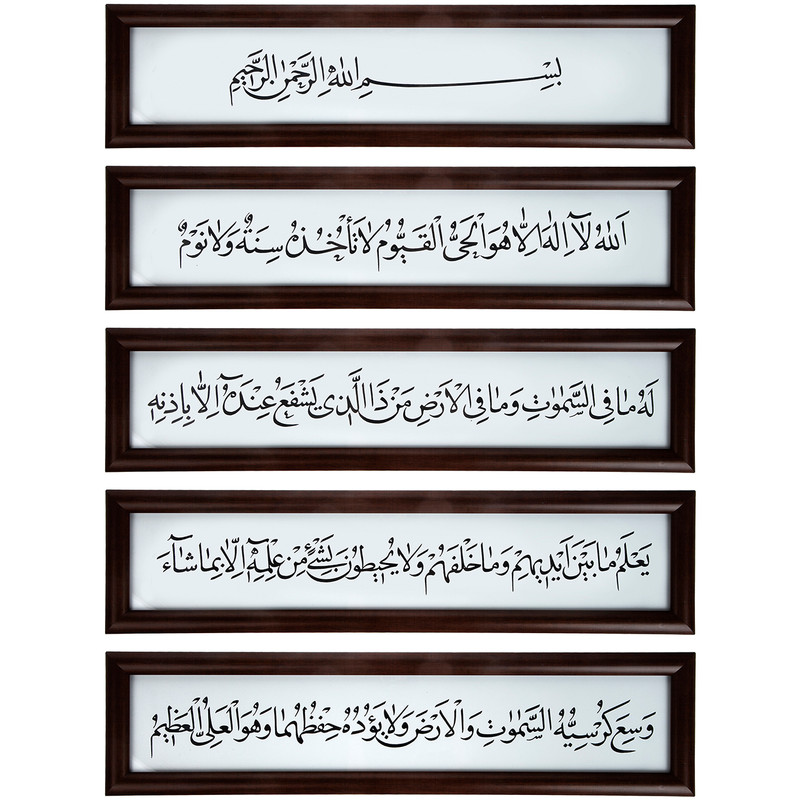 بِسْمِ اللهِ الرَّحْمٰنِ الرَّحِيْمِ
اَللهُ لَآ اِلٰهَ اِلَّا هُوَ اَلْحَىُّ الْقَيُّوْمُ لَا تَأْخُذُهٗ سِنَةٌ وَّلَا نَوْمٌ
لَهٗ مَا فِى السَّمٰوٰتِ وَمَا فِى الْاَرْضِ مَنْ ذَا الَّذِىْ يَشْفَعُ عِنْدَهٗٓ اِلَّا بِاِذْنِهٖ
يَعْلَمُ مَا بَيْنَ اَيْدِيْهِمْ وَمَا خَلْفَهُمْ وَلَا يُحِيْطُوْنَ بِشَىْءٍ مِّنْ عِلْمِهٖٓ اِلَّا بِمَا شَآءَ
وَسِعَ كُرْسِيُّهُ السَّمٰوٰتِ وَالْاَرْضَ وَلَا يَؤُدُهٗ حِفْظُهُمَا وَهُوَ الْعَلِىُّ الْعَظِيْمُ